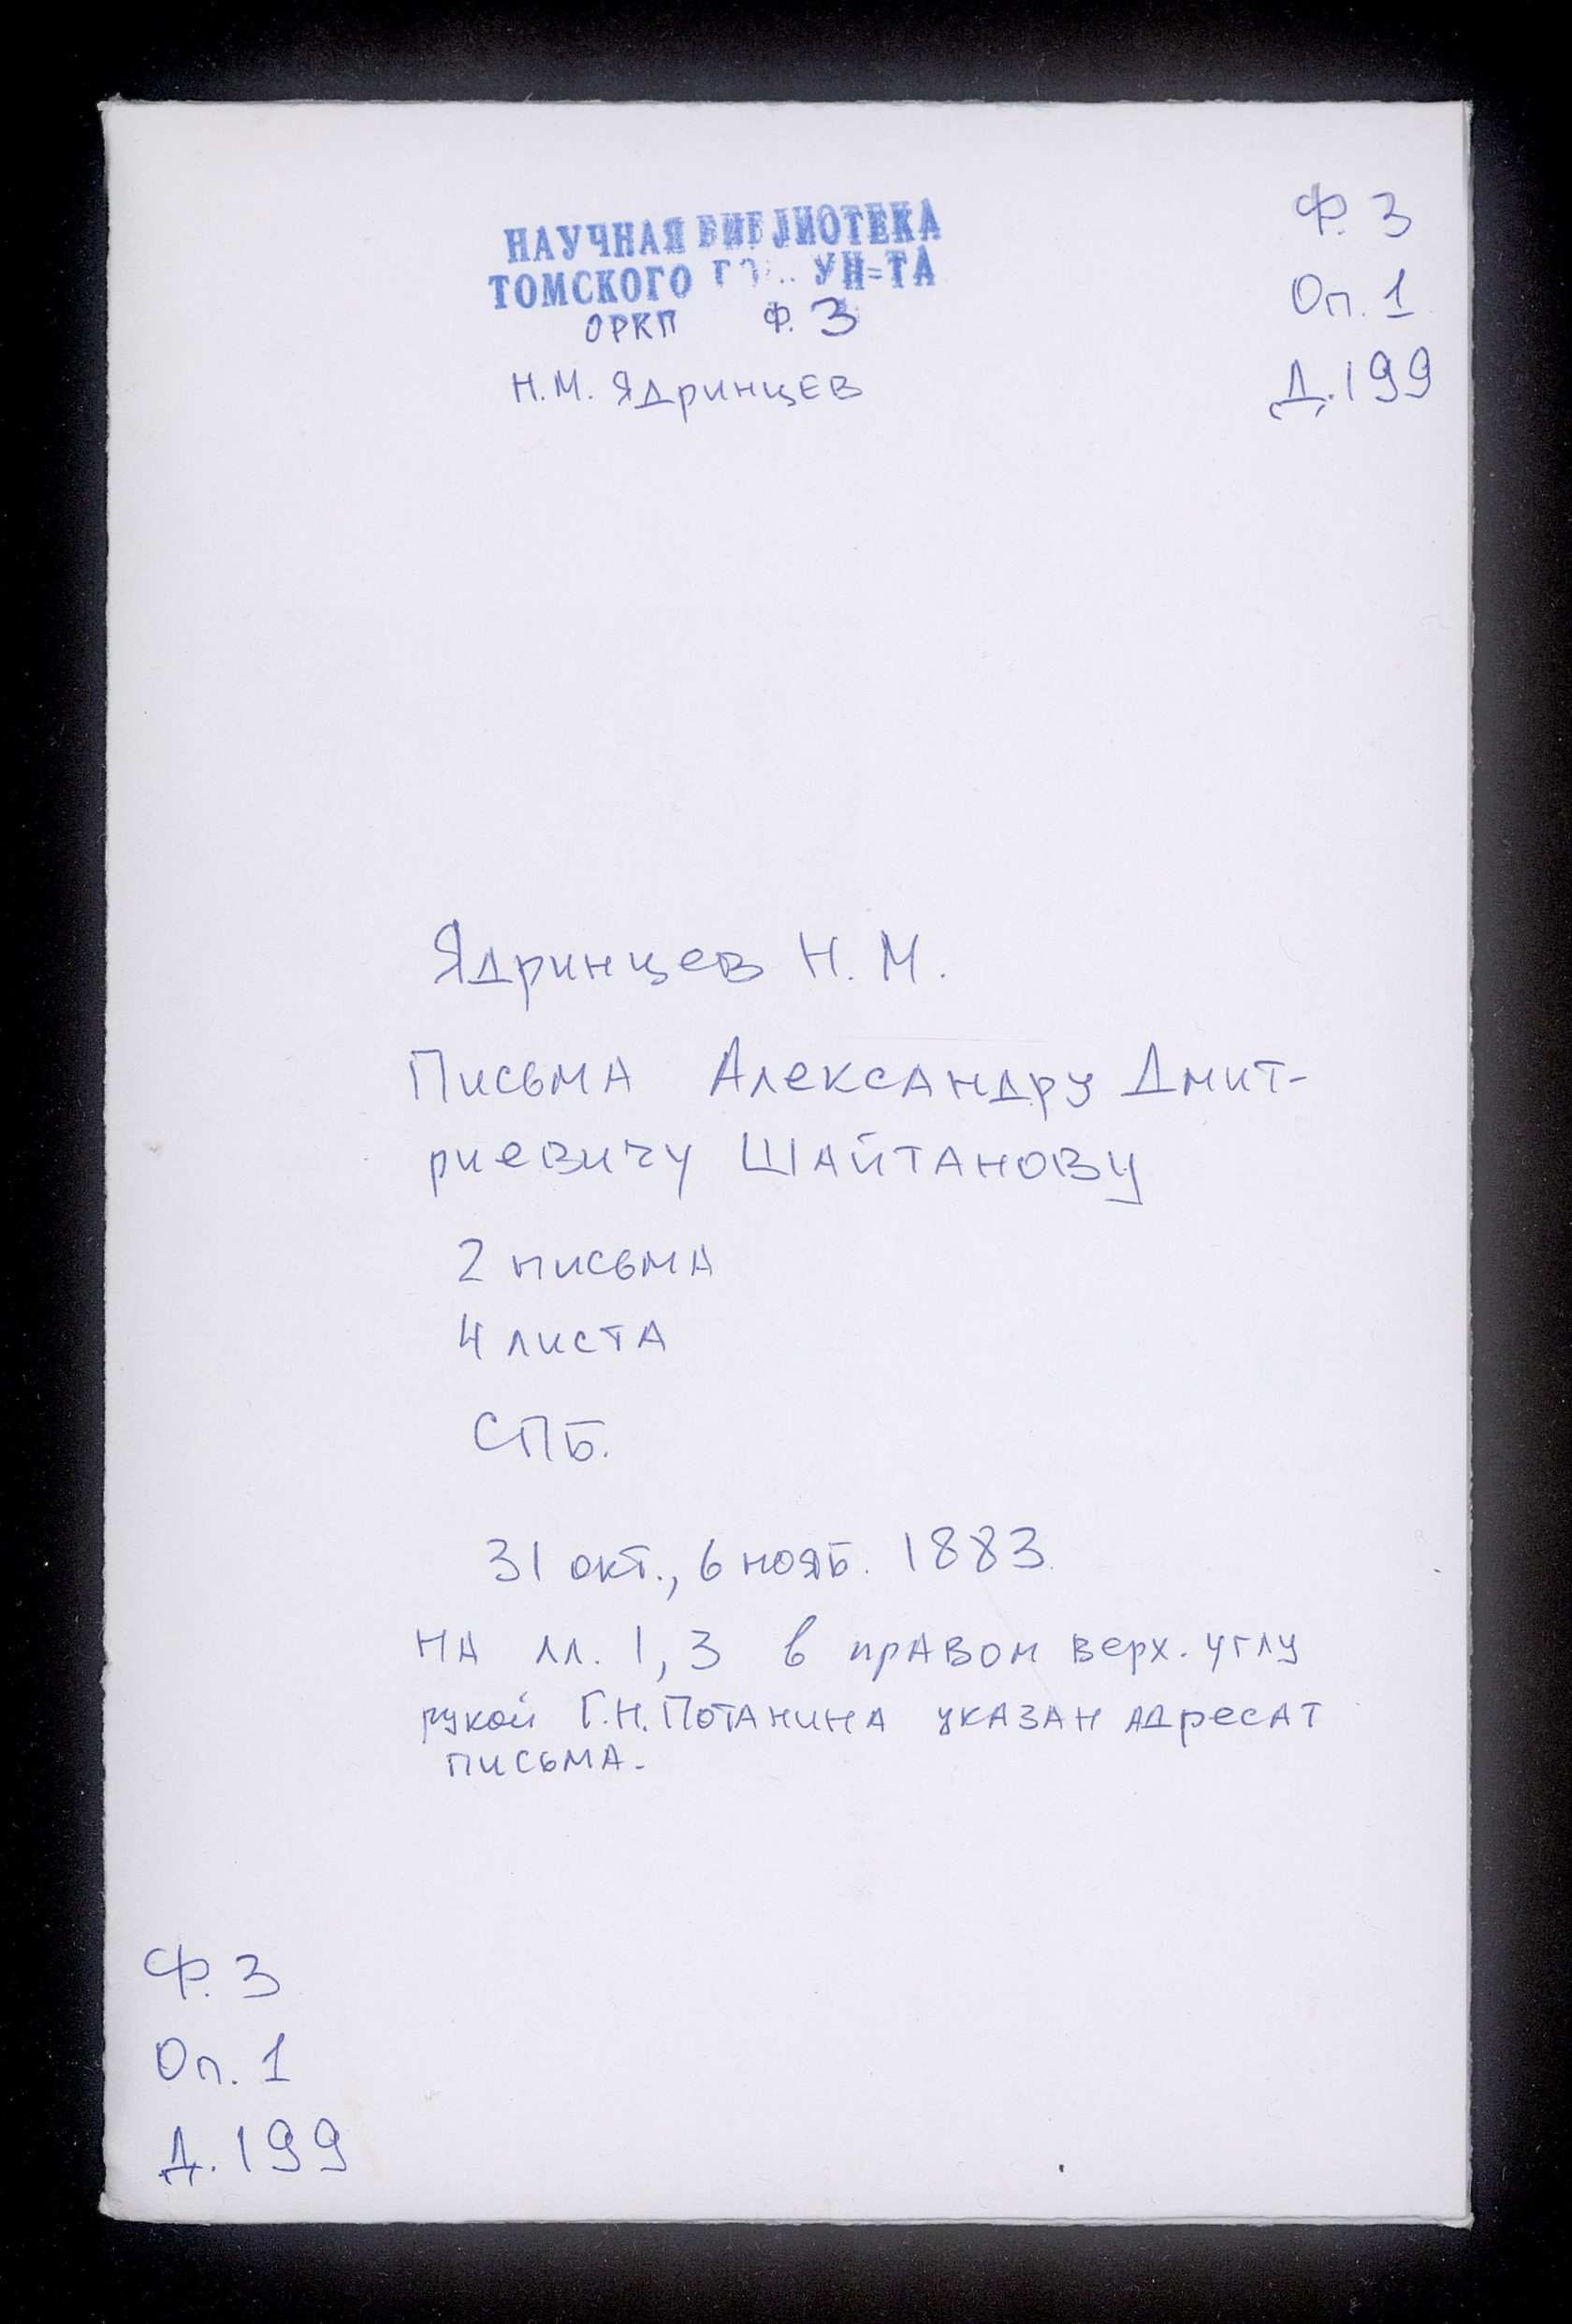 НАУЧНАЯ БИБЛИОТЕКА
ТОМСКОГО УН=ТА
ОРКП Ф. 3
Н.М. Ядринцев
Ф. 3
Оп. 1
Д. 199
Ядринцев Н. М.
Письма Александру Дмит-
риевичу Шайтанову
2 письма
4 листа
СПБ.
31 окт., 6 нояб. 1883
На лл. 1, 3 в правом верх. углу
рукой Г.Н. Потанина указан адресат
письма.
Ф. 3
Оп. 1
Д. 199